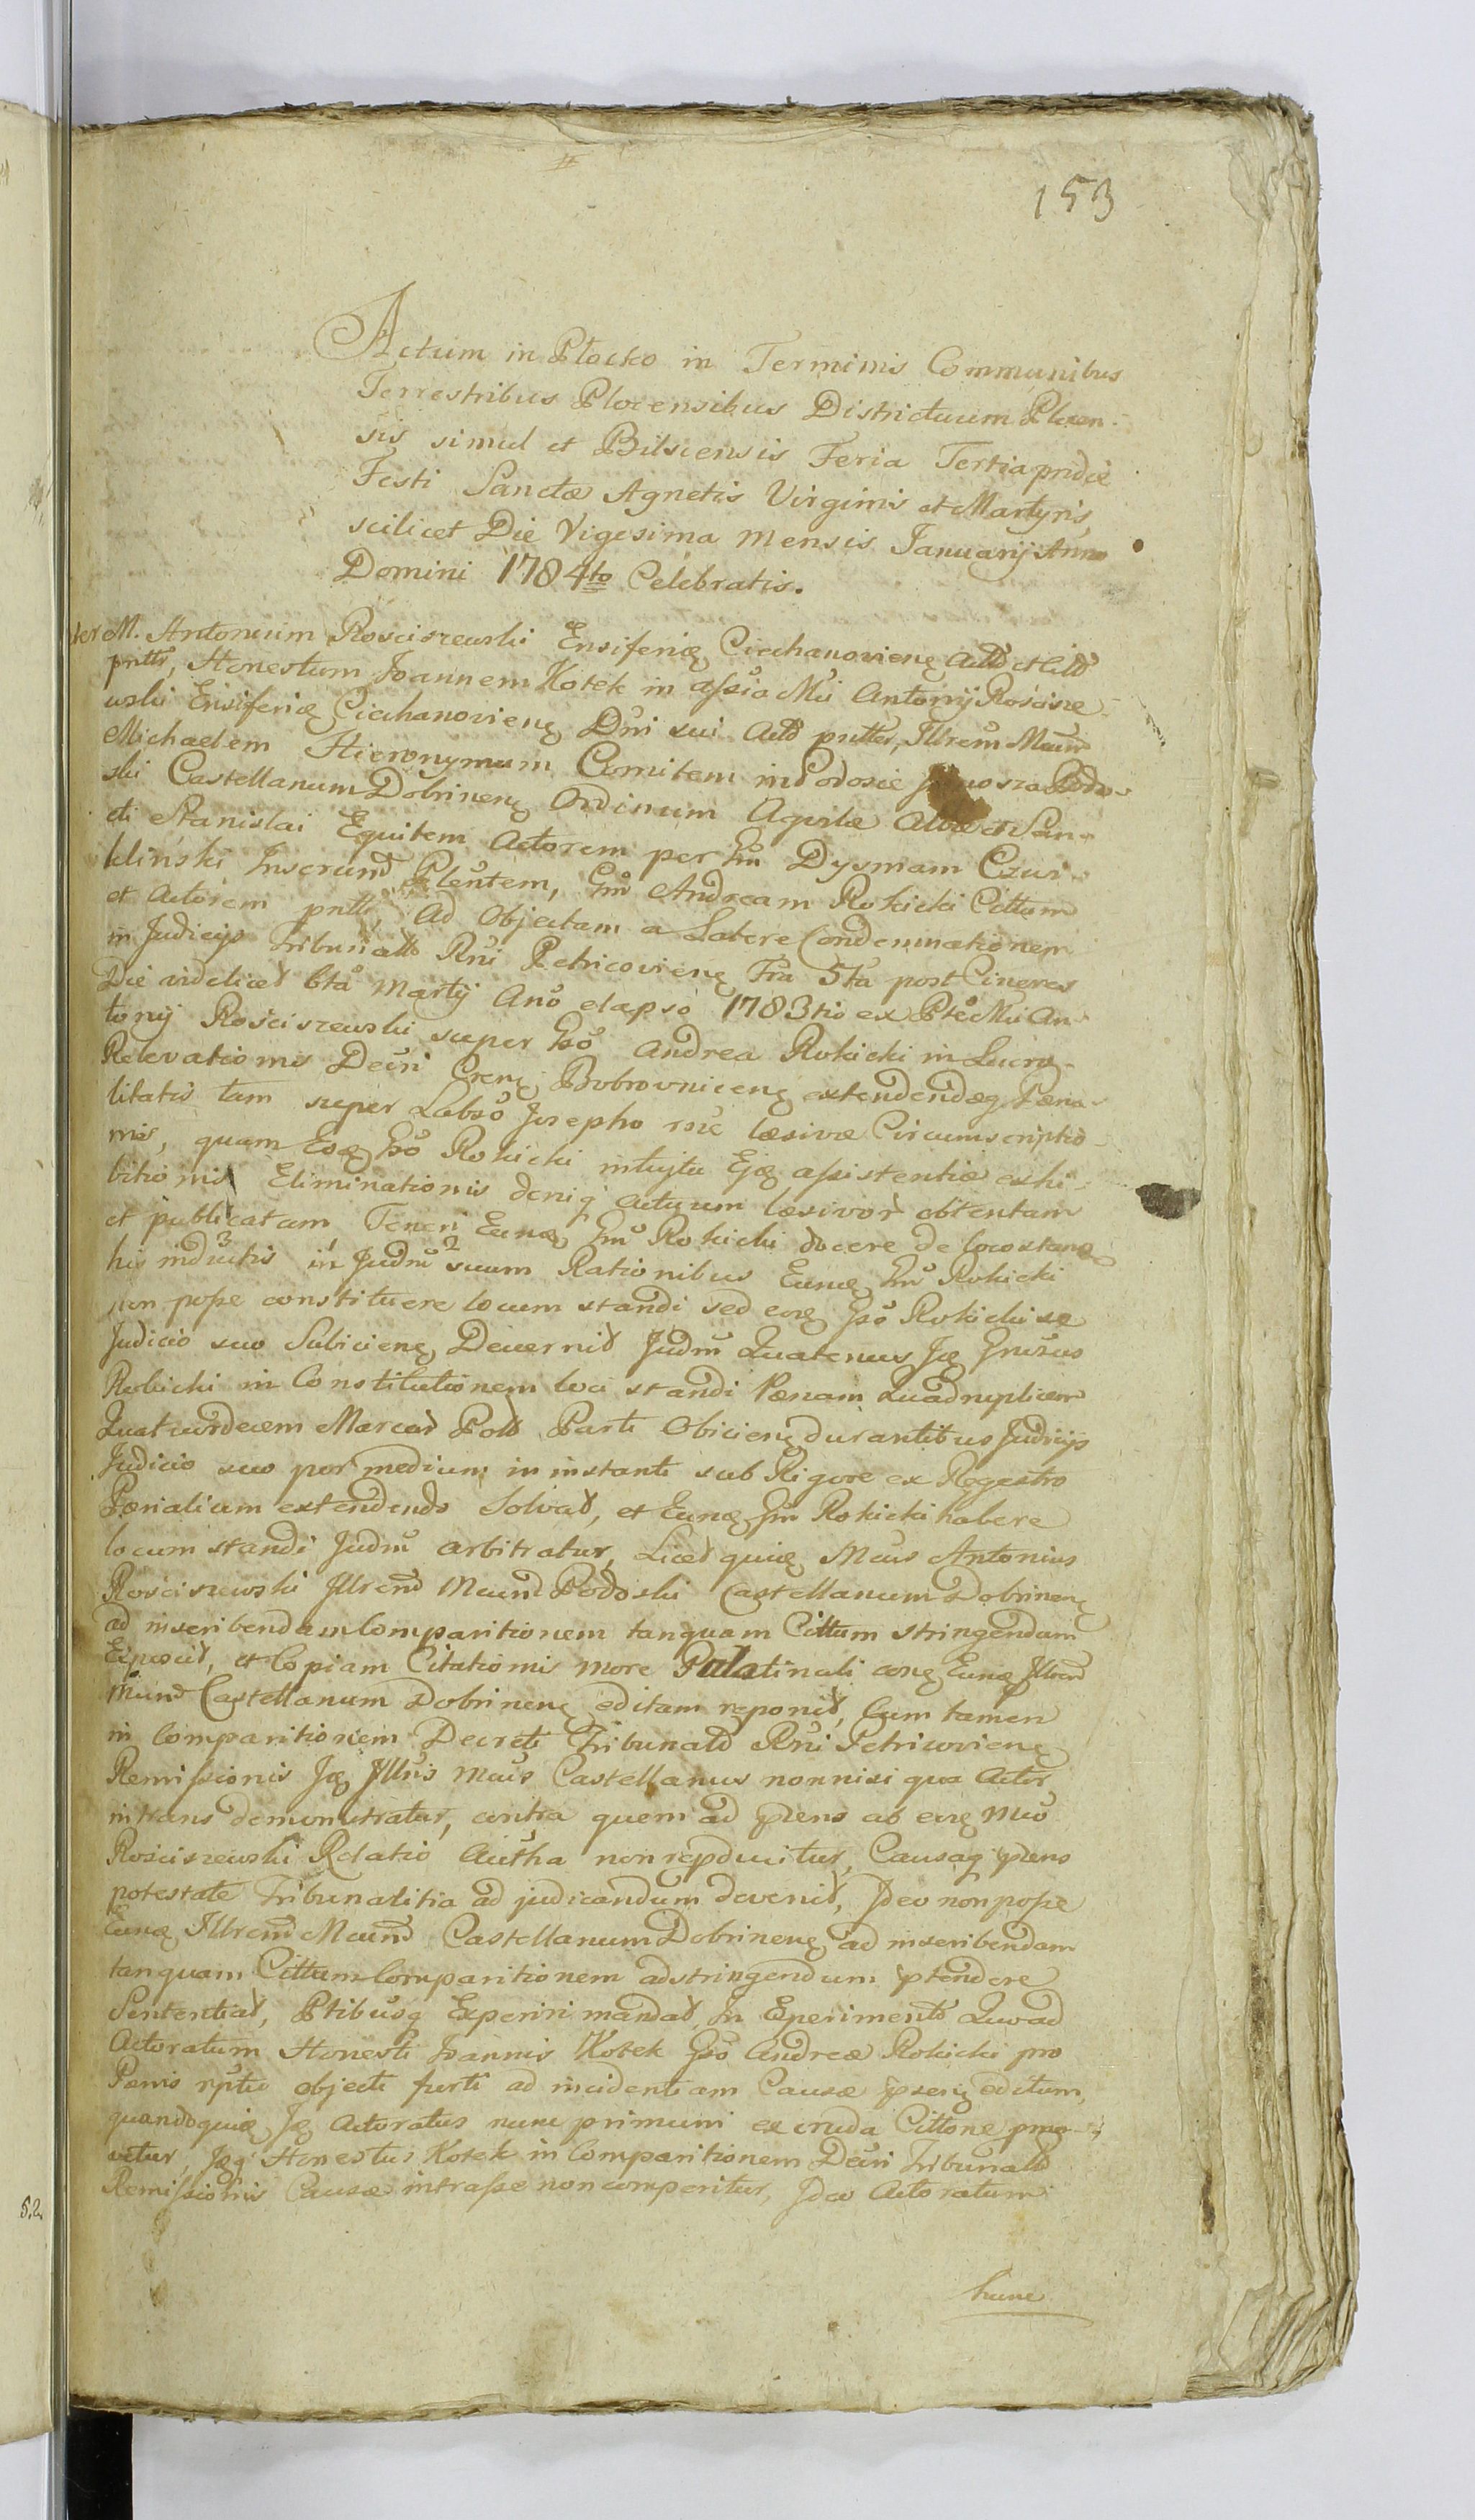 153
Actum in Płocko in Terminis Communibus
Terrestribus Plocensibus Districtuum Plocen-
sis simul et Bilscensis Feria Tertia pridie
Festi Sanctæ Agnetis Virginis et Martyris
scilicet Die Vigesima Mensis Januarij Anno
Domini 1784to Celebratis.
Inter M. Antonium Rosciszewski Ensiferũ Ciechanovienȩ Actõ et Cittõ
pntte, Honestum Joannem Kotek in assia Mci Antonij Roscisze-
wski Ensiferi Ciechanovienȩ Dni sui Actõ pntter, Illrem Mcum
Michaelem Hieronymum Comitem in Podosie Podo-
ski Castellanum Dobrinenȩ Ordinum Aquilæ Albæ et San-
cti Stanislai Equitem Actorem per Gm Dysmam Czui-
kliński Plentem, Gm Andream Rokicki Cittum
et Actorem pntte, Ad Objectam a Latere Condemnationem
in Judicijs Tribunallb Rni Petricovienȩ Fra 5ta post Cineres
Die videlicet 6ta Martij Ano elapso 1783tio ex Pte Mci An-
tonij Rosciszewski super Gso Andrea Rokicki in Lucro
Relevationis Decri Bobrovnicenȩ extendendæq Pœna-
litatis tam super Labso Josepho læsivæ Circumscriptio-
nis, quam Eoȩ Gso Rokicki intuitu Ejȩ assistentiæ exhi-
bitionis Eliminationis deniq actuum læsivor obtentam
et publicatam, Teneri Eunȩ Gm Rokicki docere de loco stanȩ
his inductis 3 in 1 Judm 2 suum Rationibus Eunȩ Gm Rokicki
non posse constituere locum standi sed eoȩ Gso Rokicki se
Judicio suo Subicienȩ Decernit Judm Quatenus Iȩ Gnrosus
Rokicki in Constitutionem loci standi Pœnam Quadruplicem
Quatuordecem Marcar Poll Parti Obicienȩ durantibus Judicijs
Judicio suo per medium in instanti sub Rigore ex Regestro
Pœnalium extendendo Solvat, et Eunȩ Gm Rokicki habere
locum standi Judm arbitratur, Licet quiȩ Mcus Antonius
Rosciszewski Illrem Mcum Podoski Castellanum Dobrinenȩ
ad inscribendam Comparitionem tanquam Cittum stringendum
Exposcit, et Copiam Citationis more Palatinali coȩ Eunȩ Illrem
Mcum Castellanum Dobrinenȩ editam reponit, Cum tamen
in Comparitionem Decreti Tribunalis Rni Petricovienȩ
Remissionis Iȩ Illris Mcus Castellanus nonnisi qua Actor
intrans demonstratur, contra quem ad præns ab eoȩ Mco
Rosciszewski Relatio Autha non repducitur, Causaq præns
potestate Tribunalitia ad judicandum devenit, Ideo non posse
Eunȩ Illrem Mcum Castellanum Dobrinenȩ ad inscribendam
tanquam Cittum Comparitionem adstringendum ptendere
Sententiat, Ptibusq Experiri mandat, In Experimento Quoad
Actoratum Honesti Joannis Kotek Gso Andreæ Rokicki pro
Pœnis objecti furti ad incidentiam Causæ præsenȩ editum,
quandoquiȩ Iȩ Actoratus nunc primum ex cruda Cittone pmo-
vetur, Iȩq Honestus Kotek in Comparitionem Decri Tribunallis
Remissionis Causæ intrasse non comperitur, Ideo Actoratum
hunc
52.